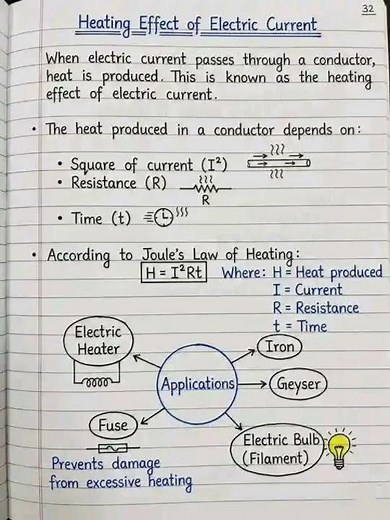 32
Heating Effect of Electric Current
When electric current passes through a conductor,
heat is produced. This is known as the heating
effect of electric current.
• The heat produced in a conductor depends on:
• Square of current (I²)
• Resistance (R)
R
• Time (t)
• According to Joule's Law of Heating:
H = I²Rt Where: H = Heat produced
I = Current
R = Resistance
t = Time
Electric
Heater
Iron
Applications
Geyser
Fuse
Electric Bulb
(Filament)
Prevents damage
from excessive heating